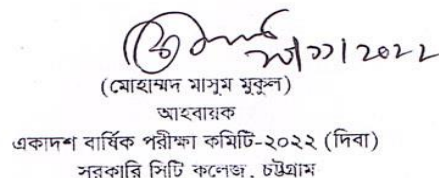 /১১/২০২২
(মোহাম্মদ মাসুম মুকুল)
আহবায়ক
একাদশ বার্ষিক পরীক্ষা কমিটি-২০২২ (দিবা)
সরকারি সিটি কলেজ, চট্টগ্রাম